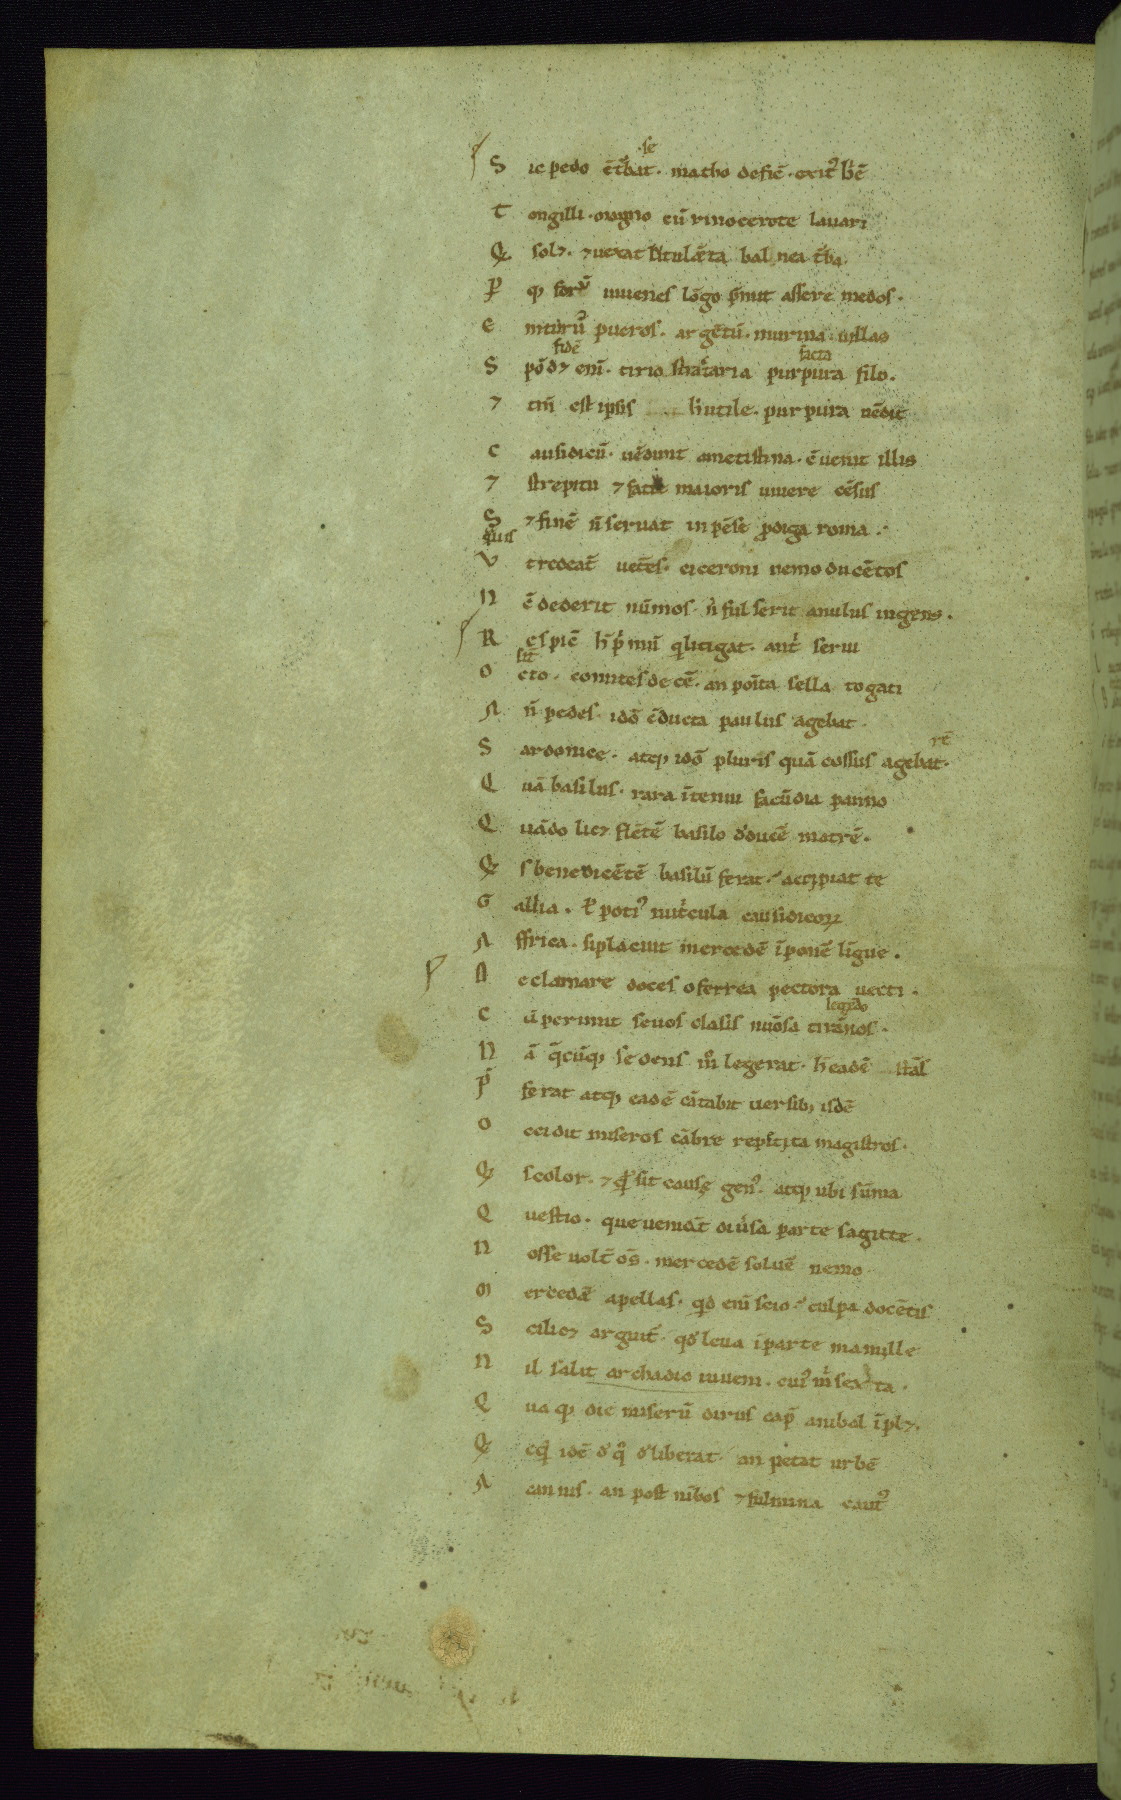 se
S ic pedo ct͛bat · matho deficͫ · exit᾽ h̓ ē
T ongilli · magno cū rinocerote lauari
Q solꝫ · ⁊uexat lutulēta balnea t͛ba
P qꝫ forū iuuenes lōgo p̄mit assere medos ·
E mturꝰ pueros · argētū · murrina uillas
fidē facta
S pōdꝫ enī · tirio stlataria purpura filo ·
⁊ tm̄ est ipsis h̓ utile · purpura uēdit
C ausidicū · uēdunt ametistina · cōuenit illis
⁊ strepitu ⁊ facie maioris uiuere cēsus
S ⁊ finē n̄ seruat inpēse ꝓdiga roma ·
quis
V t redeāt uetēs · ciceroni nemo ducētos
N c̄ dederit nūmos · n̓ fulserit anulus ingens ·
R espic̄ h̄ p̓mū q̓ litigat · an t̓ serui
sīt
O cto · comites decē · an poīta sella togati
A n̄ pedes · idō c̄ducta paulus agebat ·
rē
S ardonice · atqꝫ idō pluris quā cossus agebat ·
Q uā basilus · rara ī tenui facūdia panno
Q uādo licꝫ flētē basilo ꝓducē matrē ·
Q s benedicētē basilū ferat · accipiat te
G allia · ł poti᾽ nut̓cula causidicoꝝ
A ffrica · si placuit mercedē īponē līgue ·
D eclamare doces o ferrea pectora uecti ·
legēdo
C ū perimit seuos clasis nūosa tirānos ·
N ā q̄cūqꝫ sedens m̊ legerat · h̓ eadē stās
P̄ ferat atqꝫ eadē cātabit uersibꝫ isdē
O ccidit miseros cābre repetita magistros ·
Q s color · ⁊ q̓ sit cause gen᾽ · atqꝫ ubi sūma
Q uestio · que ueniāt diu̓sa parte sagitte ·
N osse uolt̄ oēs · mercedē soluē nemo
M ercedē apellas · qd̓ enī scio · culpa docētis
S cilicꝫ arguit᾽ · qd̓ leua ī parte mamille
N il salit archadio iuueni · cui᾽ m̓ sexta ·
Q ua qꝫ die miserū dirus cap̄ anibal īplꝫ ·
Q cq̓ id ē ꝺ̓ q̊ ꝺ̓liberat · an petat urbē
A cannis · an post nībos ⁊ fulmina caut᾽